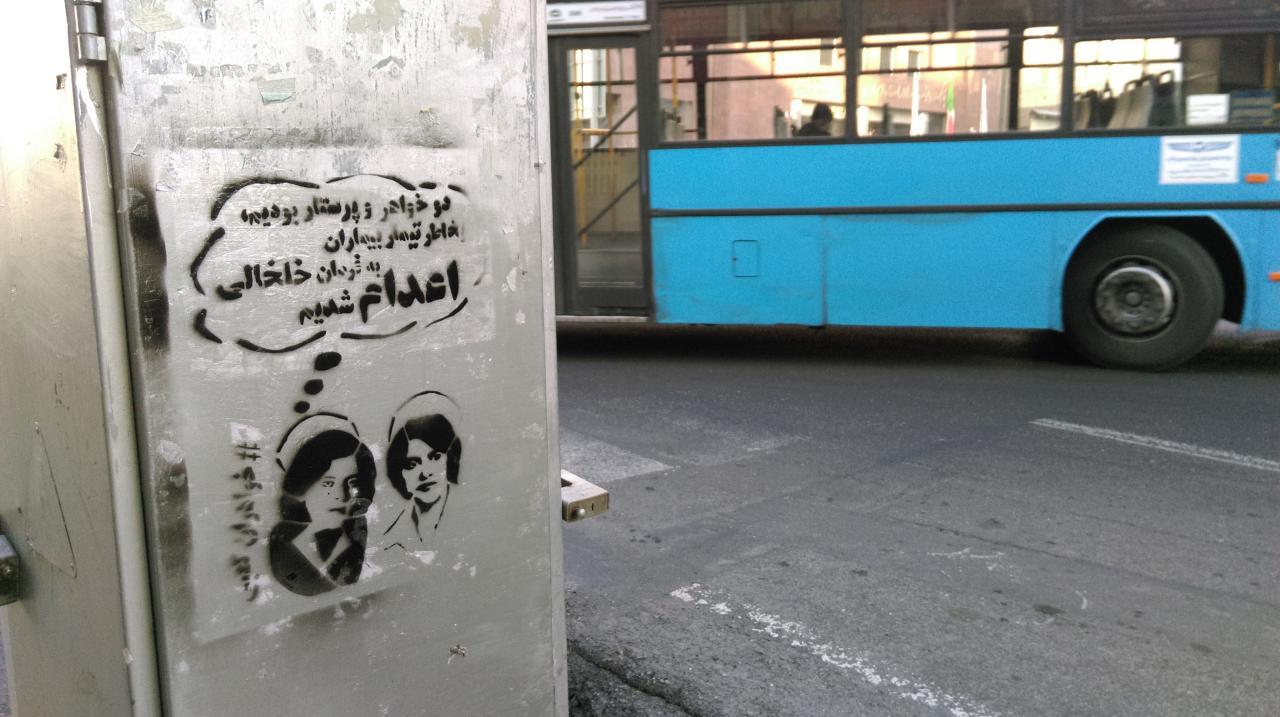 دو خواهر و پرستار بودیم،
بخاطر تیمار بیماران
به فرمان خلخالی
اعدام شدیم
#خواهران